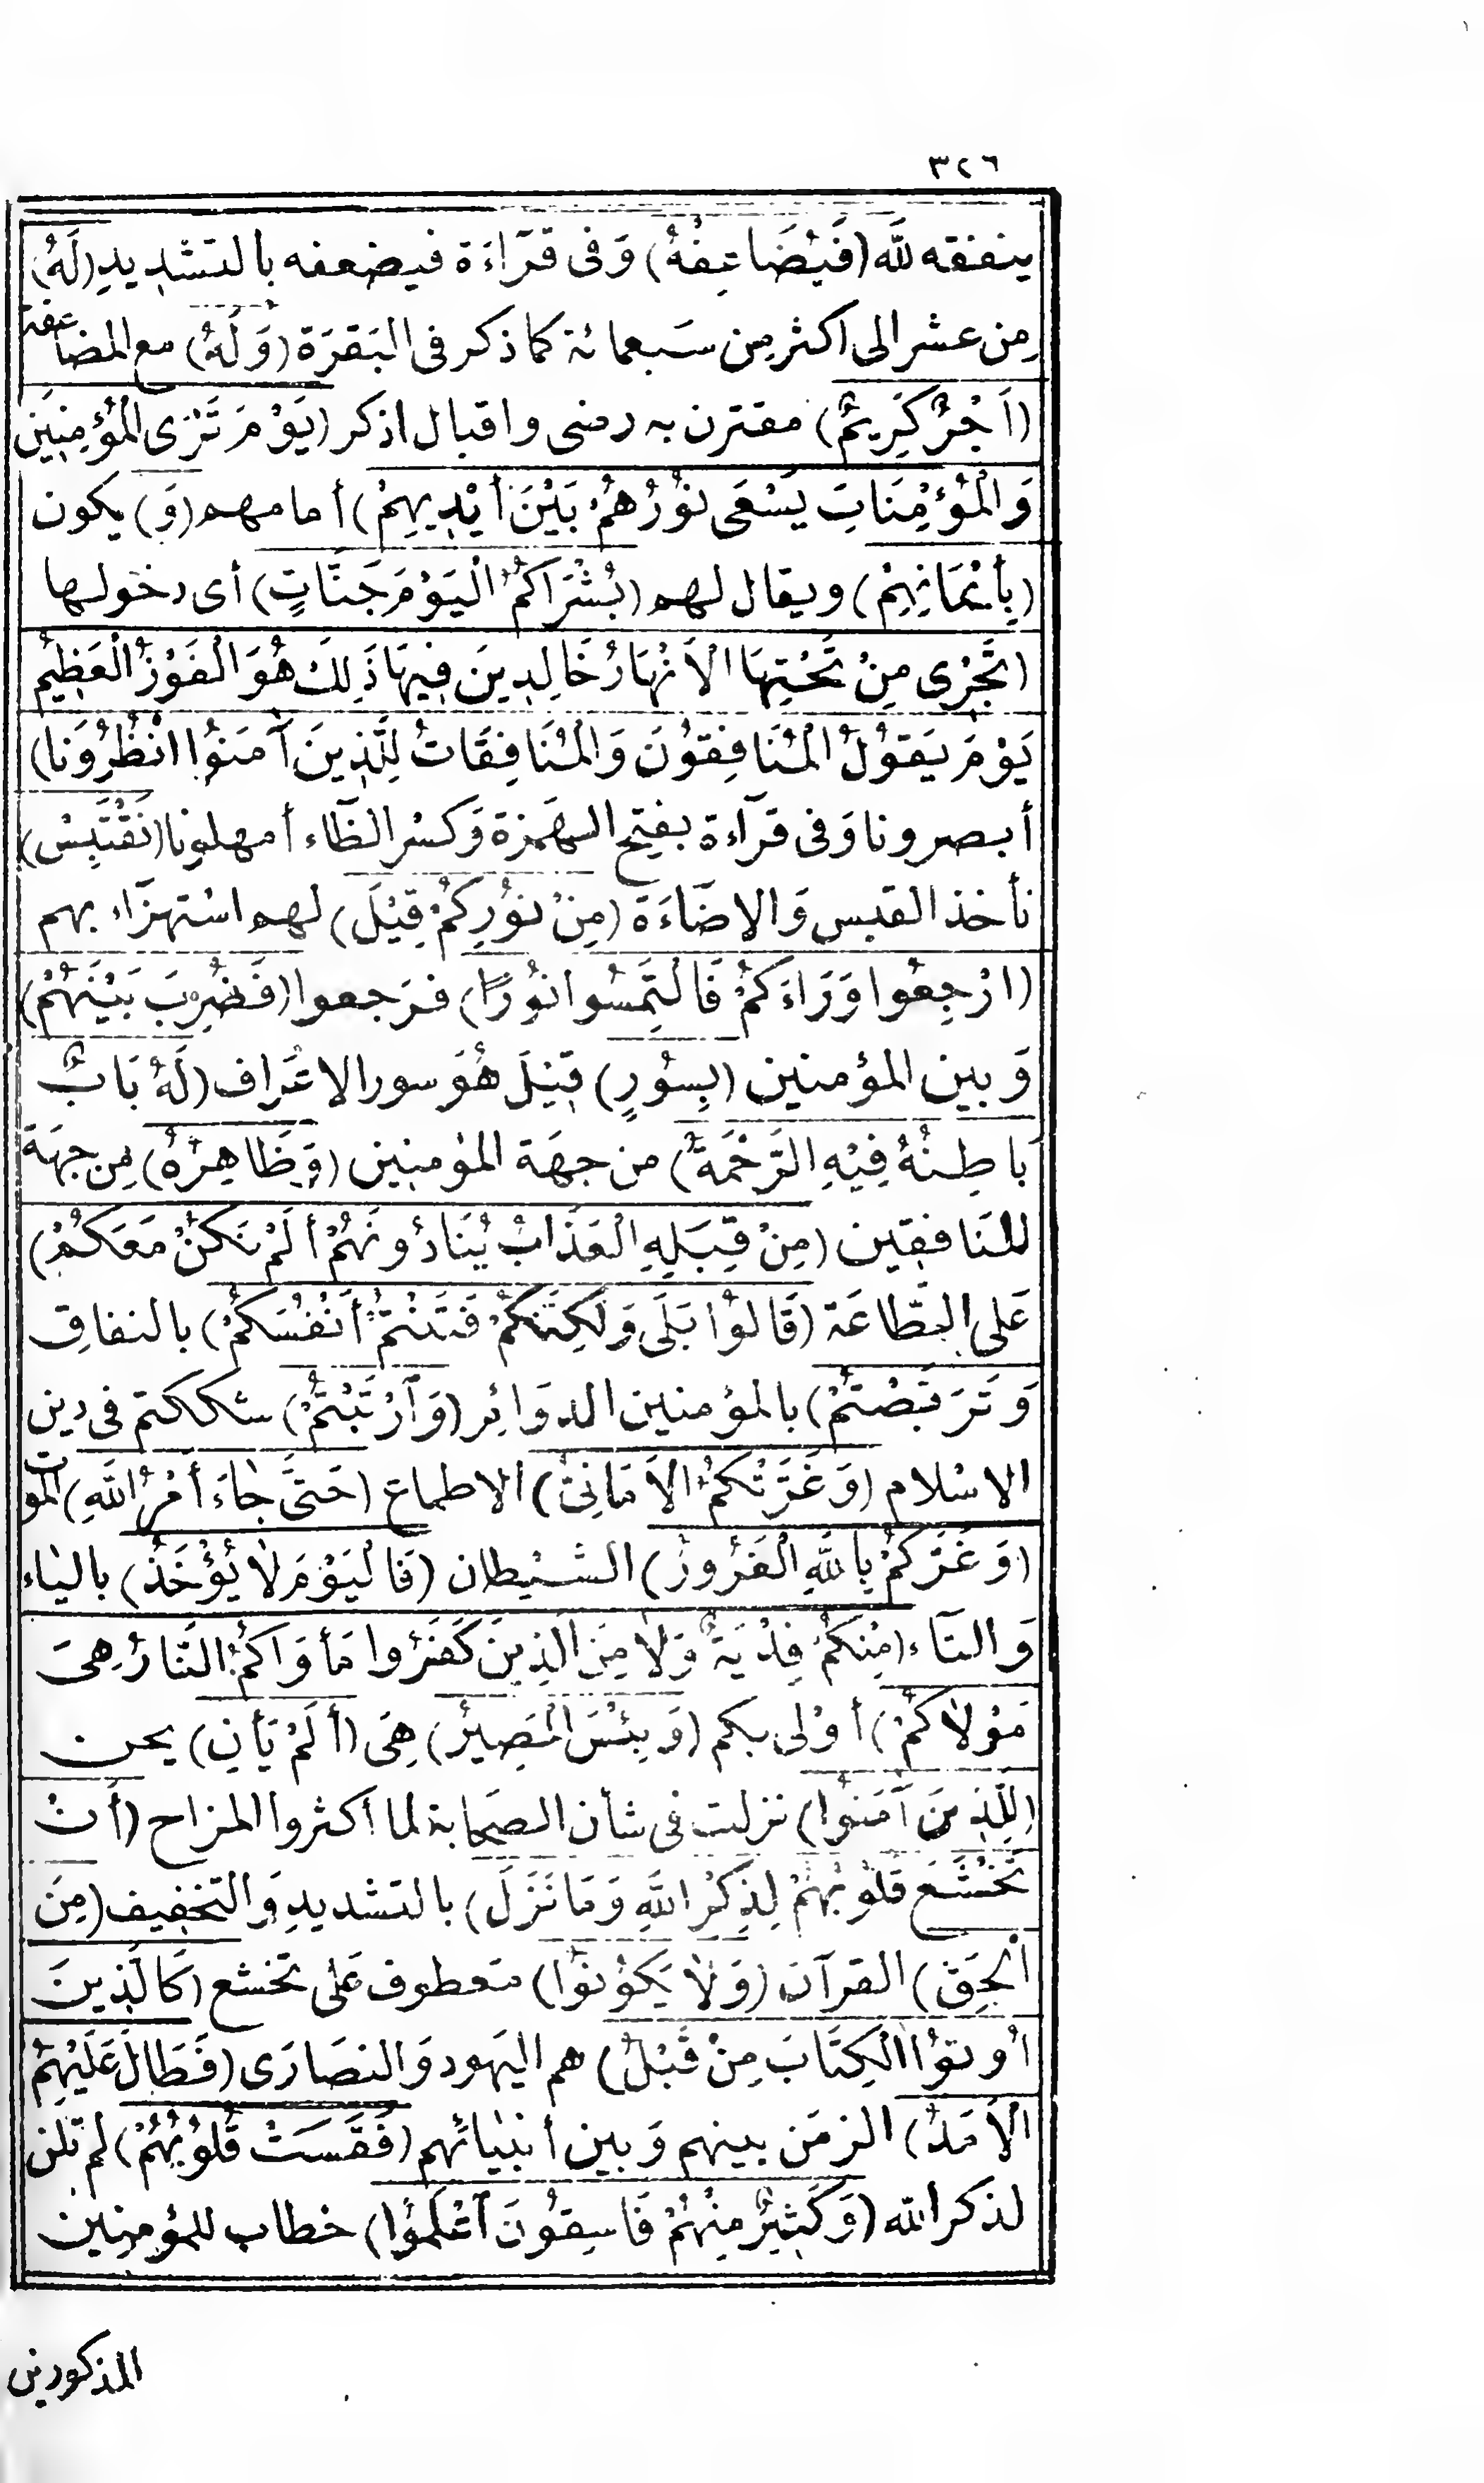 ٣٢٦
ينفقه لله (فَيُضَاعِفَهُ) وَفى قرَآءَة فيضعفه بالتشديدِ (لَهُ)
مِن عشر الى اكثر مِن سَبعمائة كما ذكر فى البَقرَة (وَلَهُ) مع المضاعَفة
(اَجْرٌ كَرِيمٌ) مقترن به رضى واقبال اذكر (يَوْمَ تَرَى الْمُؤْمِنِينَ
وَالْمُؤْمِنَاتِ يَسْعَى نُوْرُهُمْ بَيْنَ أَيْدِيهِمْ) أمامهم (وَ) يكون
(بِأَيْمَانِهِمْ) ويقال لهم (بُشْرَاكُمُ الْيَوْمَ جَنَّاتٍ) أى دخولها
(تَجْرِى مِنْ تَحْتِهَا الْاَنْهَارُ خَالِدِينَ فِيهَا ذَلِكَ هُوَ الْفَوْزُ الْعَظِيمُ
يَوْمَ يَقُوْلُ الْمُنَافِقُوْنَ وَالْمُنَافِقَاتُ لِلَّذِينَ آمَنُوْا انْظُرُوْنَا)
أبصرونا وَفى قرآءة بفتح الهَمزة وَكسْر الظآء أمهلونا (نَقْتَبِسْ)
نأخذ القبس وَالاضَآءَة (مِنْ نُوْرِكُمْ قِيْلَ) لهم اسْتهزَآء بهم
(ارْجِعُوا وَرَاءَكُمْ فَالْتَمِسُوا نُوْرًا) فرَجعوا (فَضُرِبَ بَيْنَهُمْ)
وَبين المؤمنين (بِسُوْرٍ) قيْلَ هُوَ سور الاعْرَاف (لَهُ بَابٌ
بَاطِنُهُ فِيْهِ الرَّحْمَةُ) من جهَة المؤمنين (وَظَاهِرُهُ) مِن جهَة
المنَافقين (مِنْ قِبَلِهِ الْعَذَابُ يُنَادُوْنَهُمْ أَلَمْ نَكُنْ مَعَكُمْ)
عَلى الطَّاعَة (قَالُوْا بَلَى وَلَكِنَّكُمْ فَتَنْتُمْ أَنْفُسَكُمْ) بالنفاقِ
وَتَرَبَّصْتُمْ) بالمؤمنين الدوَائر (وَآرْتَبْتُمْ) شككتم فى دين
الاسْلام (وَغَرَّتْكُمُ الْاَمَانِىُّ) الاطماع (حَتَّى جَاءَ أَمْرُ اللهِ) الموت
(وَغَرَّكُمْ بِاللهِ الْغَرُوْرُ) الشيْطان (فَالْيَوْمَ لَا يُؤْخَذُ) بالياء
وَالتآء (مِنْكُمْ فِدْيَةٌ وَلَا مِنَ الَّذِيْنَ كَفَرُوا مَأْوَاكُمُ النَّارُ هِىَ
مَوْلَاكُمْ) أوْلى بكم (وَبِئْسَ الْمَصِيْرُ) هِىَ (أَلَمْ يَأْنِ) يحن
(لِلَّذِينَ آمَنُوْا) نزلت فى شأن الصحَابة لما أكثروا المزاح (أَنْ
تَخْشَعَ قُلُوْبُهُمْ لِذِكْرِ اللهِ وَمَا نَزَلَ) بالتشديدِ وَالتخفيف (مِنَ
الْحَقِّ) القرآن (وَلَا يَكُوْنُوْا) مَعطوف عَلى تخشع (كَالَّذِينَ
اُوْتُوْا الْكِتَابَ مِنْ قَبْلُ) هم اليَهود وَالنصَارَى (فَطَالَ عَلَيْهِمُ
الْاَمَدُ) الزمَن بينهم وَبين أنبيائهم (فَقَسَتْ قُلُوْبُهُمْ) لم تلن
لذكر الله (وَكَثِيْرٌ مِنْهُمْ فَاسِقُوْنَ آعْلَمُوْا) خطاب للمؤمنِين
المذكورين